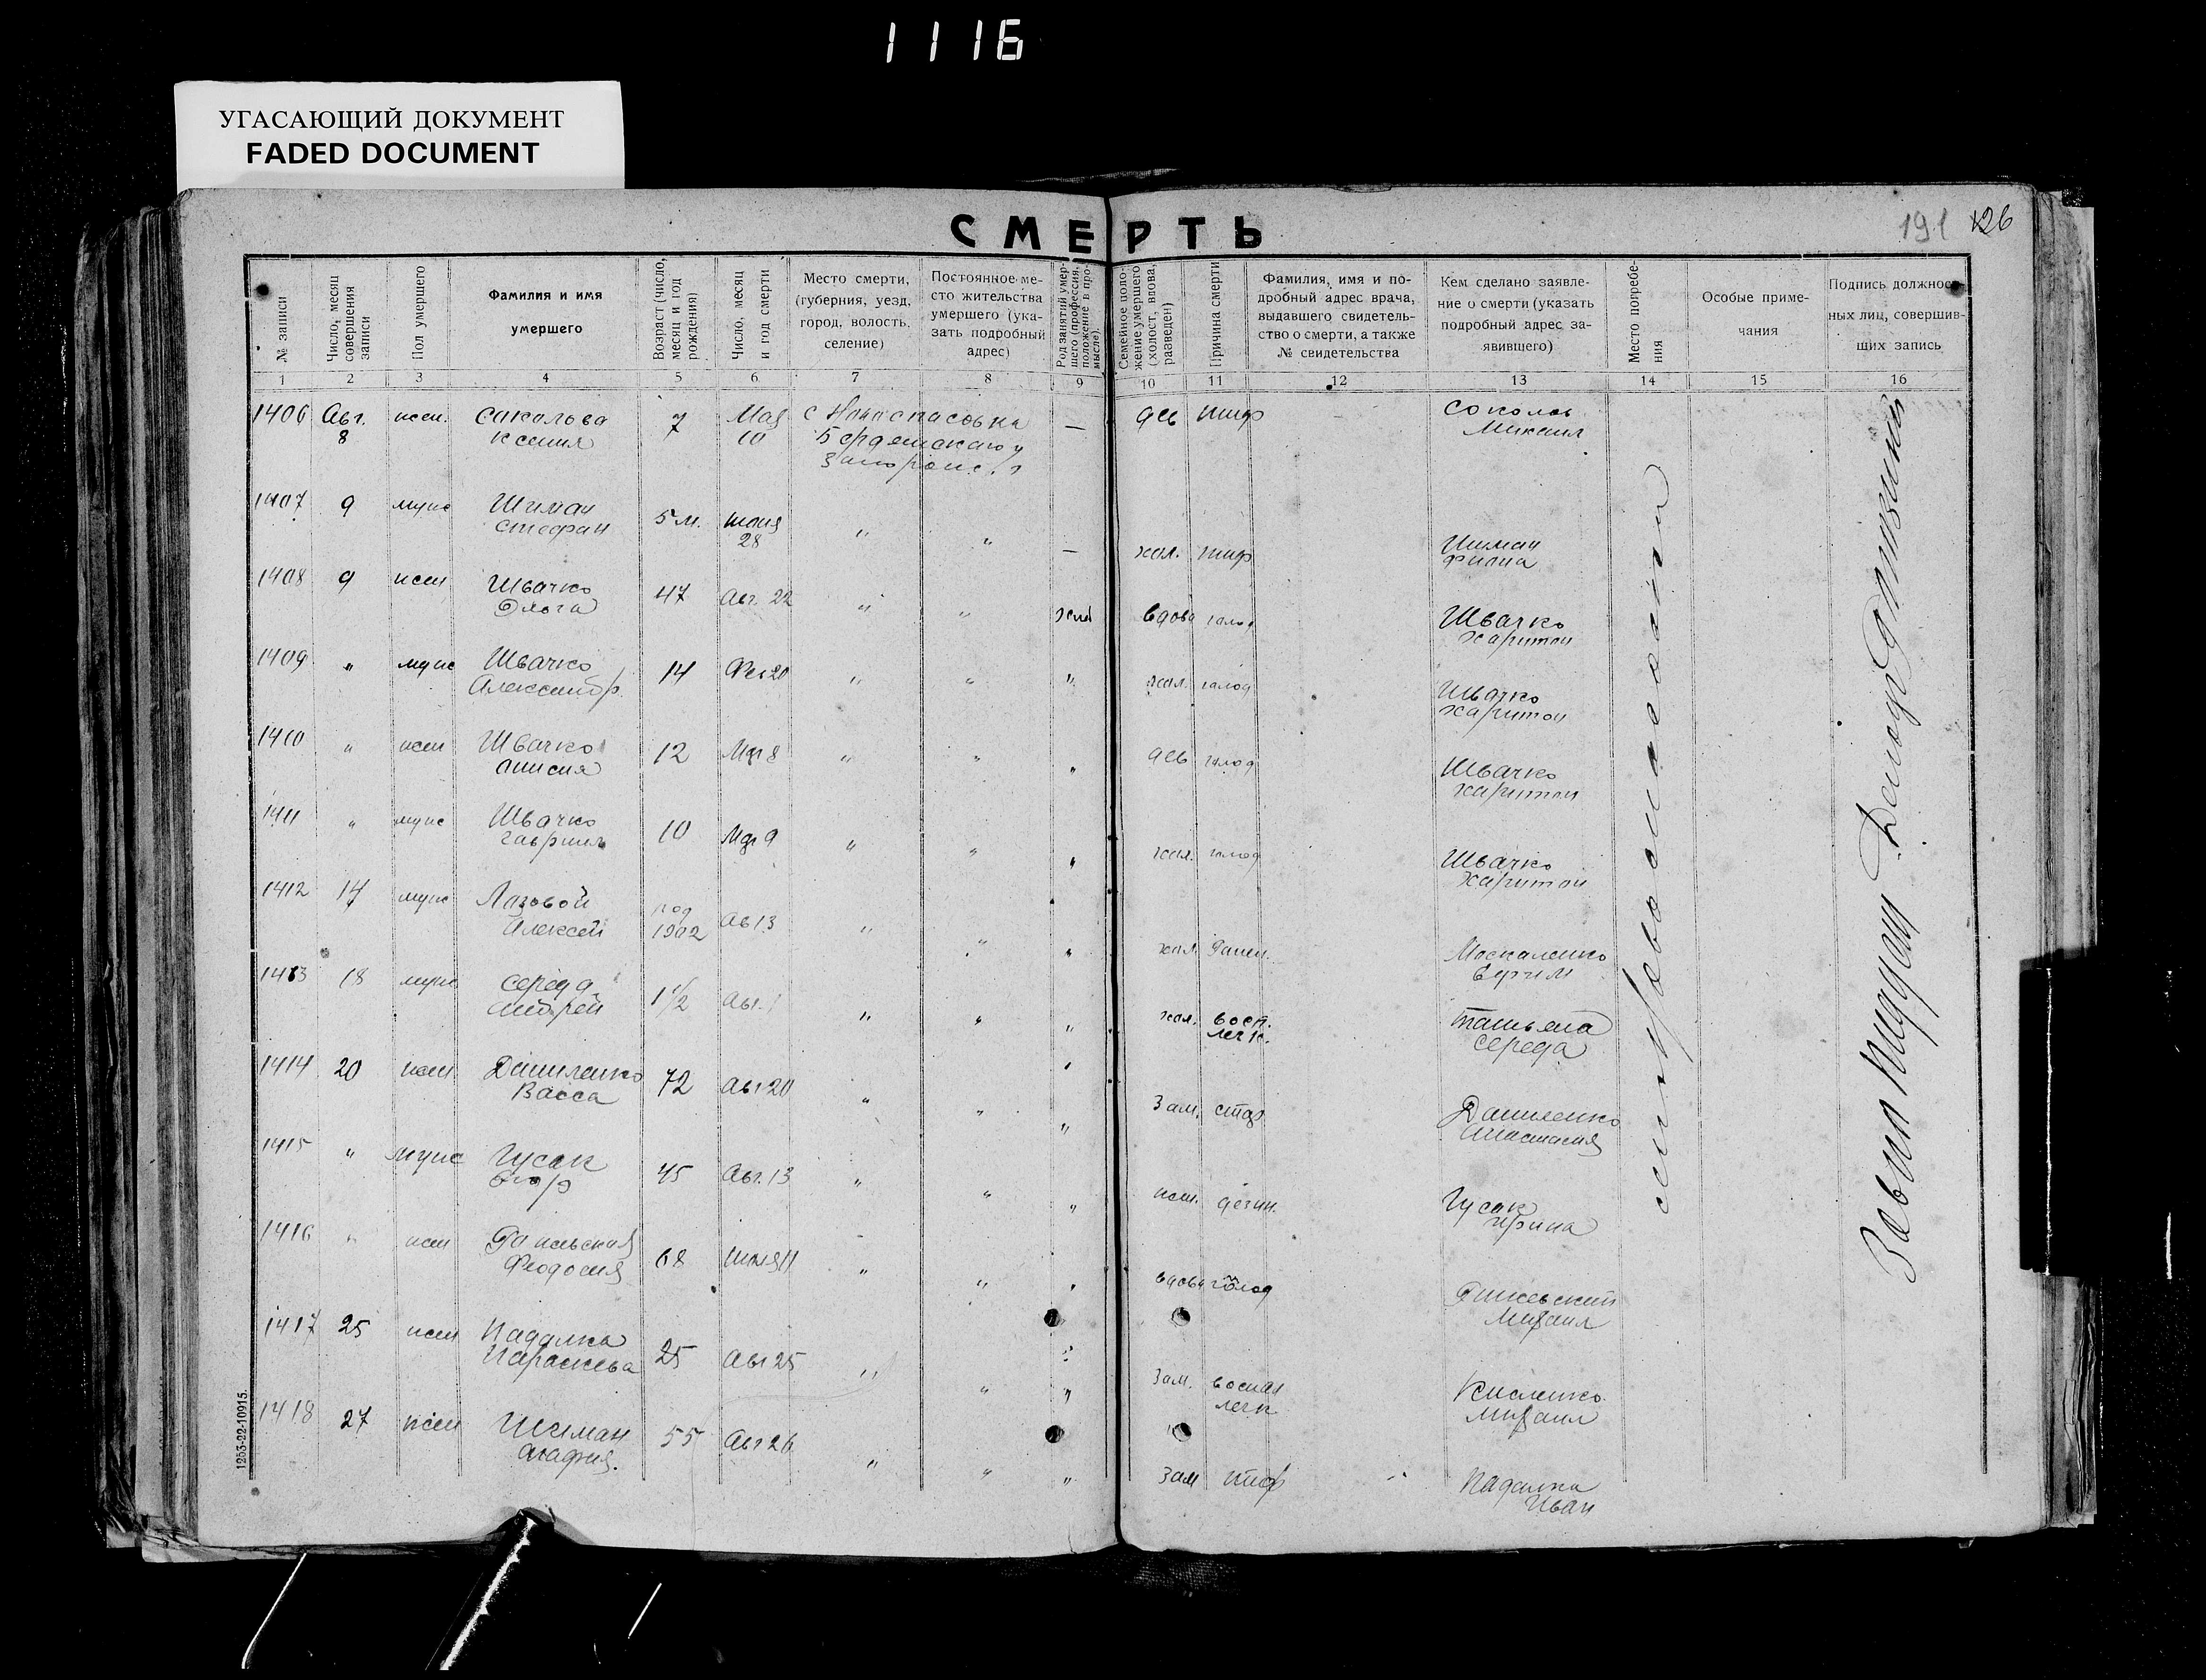 1116
УГАСАЮЩИЙ ДОКУМЕНТ
FADED DOCUMENT
СМЕРТЬ
191 126
№ записи
Число, месяц совершения записи
Пол умершего
Фамилия и имя умершего
Возраст (число, месяц и год рождения)
Число, месяц и год смерти
Место смерти, (губерния, уезд, город, волость, селение)
Постоянное место жительства умершего (указать подробный адрес)
Род занятий умершего (профессия, положение в промысле).
Семейное положение умершего (холост, вдова, разведен)
Причина смерти
Фамилия, имя и подробный адрес врача, выдавшего свидетельство о смерти, а также № свидетельства
Кем сделано заявление о смерти (указать подробный адрес заявившего)
Место погребения
Особые примечания
Подпись должностных лиц, совершивших запись
1 2 3 4 5 6 7 8 9 10 11 12 13 14 15 16
1406 Авг. 8 жен. Сакалова Ксения 7 Мая 10 с Новоспасовка — дев тиф Соколов Михаил
1407 9 муж Шиман Стефан 5 м. июня 28 " " — хол. тиф Шиман
1408 9 жен Швачко Ольга 47 Авг. 22 " " вдова голод Швачко Харитон
1409 " муж Швачко Александр 14 Фев 20 " " " хол. голод Швачко Харитон
1410 " жен Швачко Анисия 12 Мар 8 " " " дев голод Швачко Харитон
1411 " муж Швачко Гавриил 10 Мар 9 " " " хол. голод Швачко Харитон
1412 17 муж Лазовой Алексей год 1902 Ав 13 " " " хол. Москаленко Ефим
1413 18 муж Середа Андрей 1 1/2 Авг. 1 " " " хол. восп. легк. Татьяна Середа
1414 20 жен Даниленко Васса 72 Авг 20 " " " зам. стар Даниленко Анастасия
1415 " муж Гусак Егор 45 Авг. 13 " " " жен. дезин. Гусак Ирина
1416 " жен Феодосия 68 июля 11 " " " вдова голод Михаил
1417 25 жен Падалка Параскева 25 Авг 25 " " " зам. воспал легк Кисленко Михаил
1418 27 жен Шиман Агафия. 55 Авг 26 " " " зам тиф Падалка Иван
1253-22-10915.